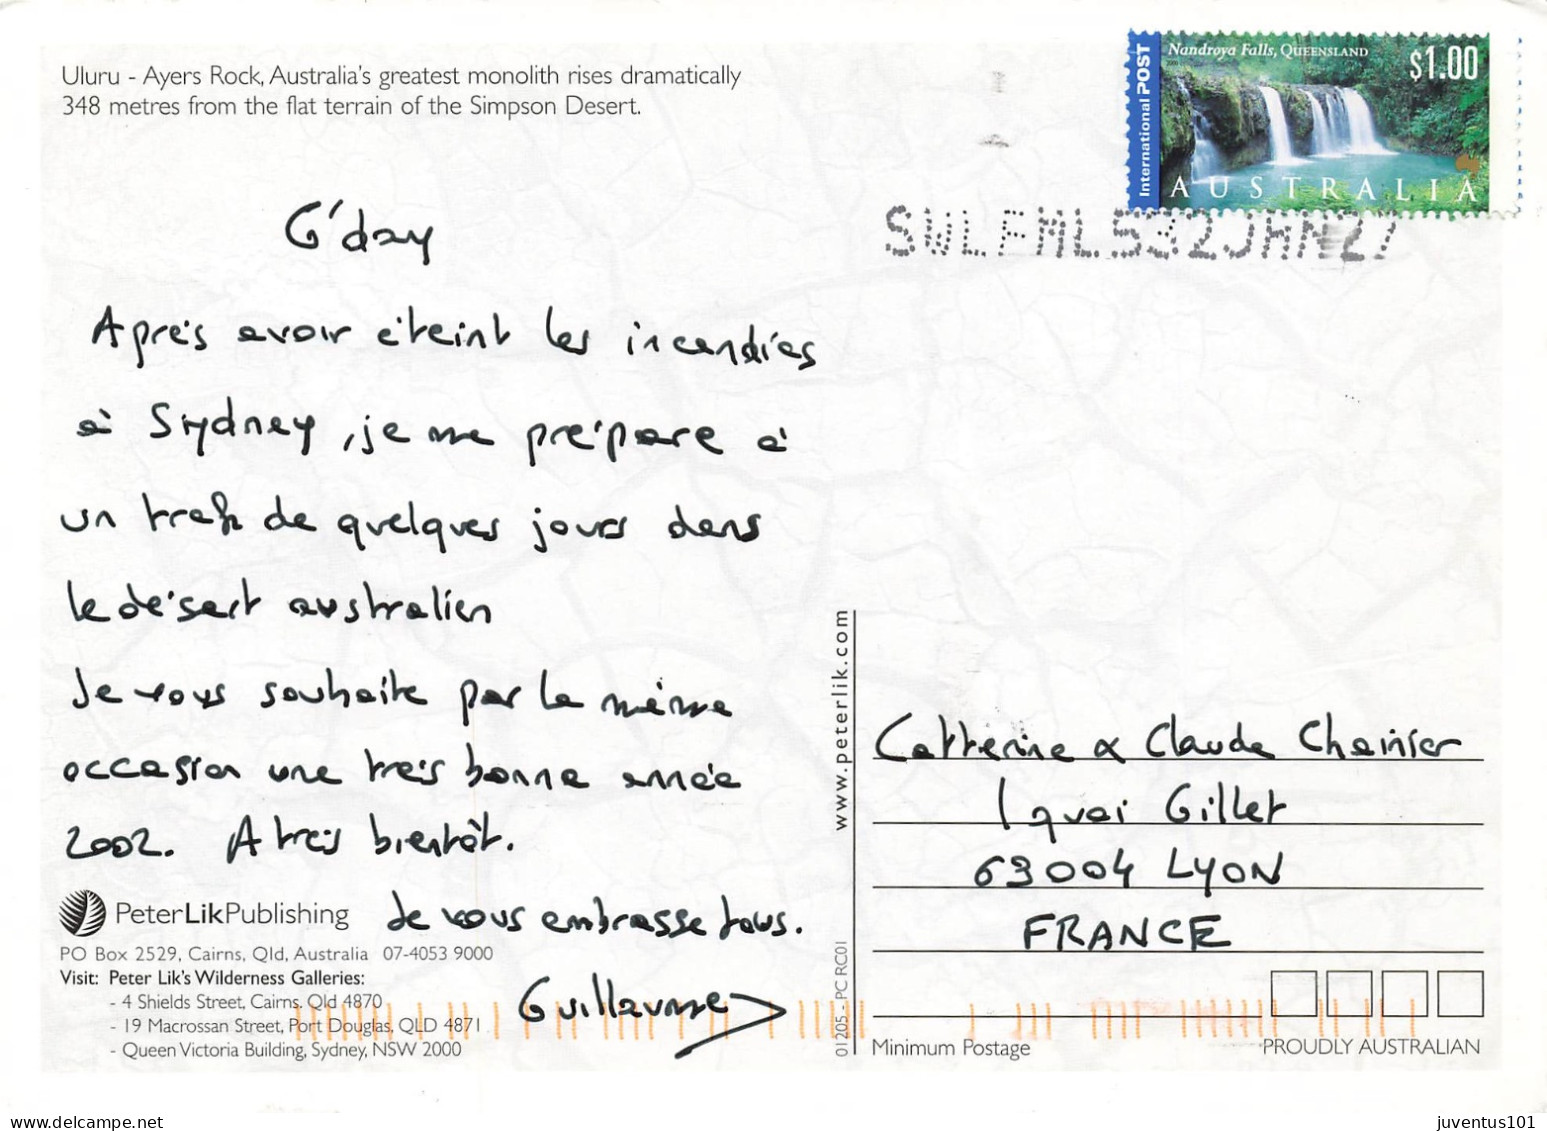 Uluru - Ayers Rock, Australia's greatest monolith rises dramatically
348 metres from the flat terrain of the Simpson Desert.
International POST
Nandroya Falls, QUEENSLAND
$1.00
AUSTRALIA
SWLFML532JAN27
G'day
Après avoir éteint les incendies
à Sydney, je me prépare à
un trek de quelques jours dans
le désert australien
Je vous souhaite par la même
occasion une très bonne année
2002. A très bientôt.
Je vous embrasse tous.
Guillaume
PeterLikPublishing
PO Box 2529, Cairns, Qld, Australia 07-4053 9000
Visit: Peter Lik's Wilderness Galleries:
- 4 Shields Street, Cairns. Qld 4870
- 19 Macrossan Street, Port Douglas, QLD 4871
- Queen Victoria Building, Sydney, NSW 2000
www.peterlik.com
01205 - PC RC01
Catherine & Claude Chainier
1 quai Gillet
69004 LYON
FRANCE
Minimum Postage
PROUDLY AUSTRALIAN
juventus101